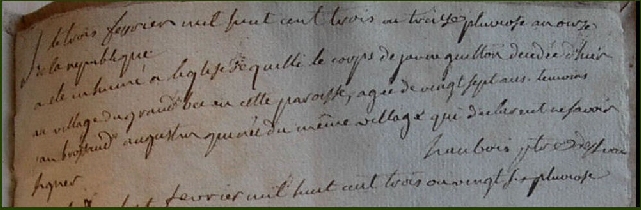 le trois fevrier mil huit cent trois ou treize pluviose an onze
de la republique
a ete inhumé a leglise de quilli le corps de jeanne guitton decedée d'hier
au village du grand en cette paroisse, agée de vingt sept ans. temoins
augustin du même village qui declarent ne savoir
signer
haubois ptre
fevrier mil huit cent trois ou vingt six pluviose